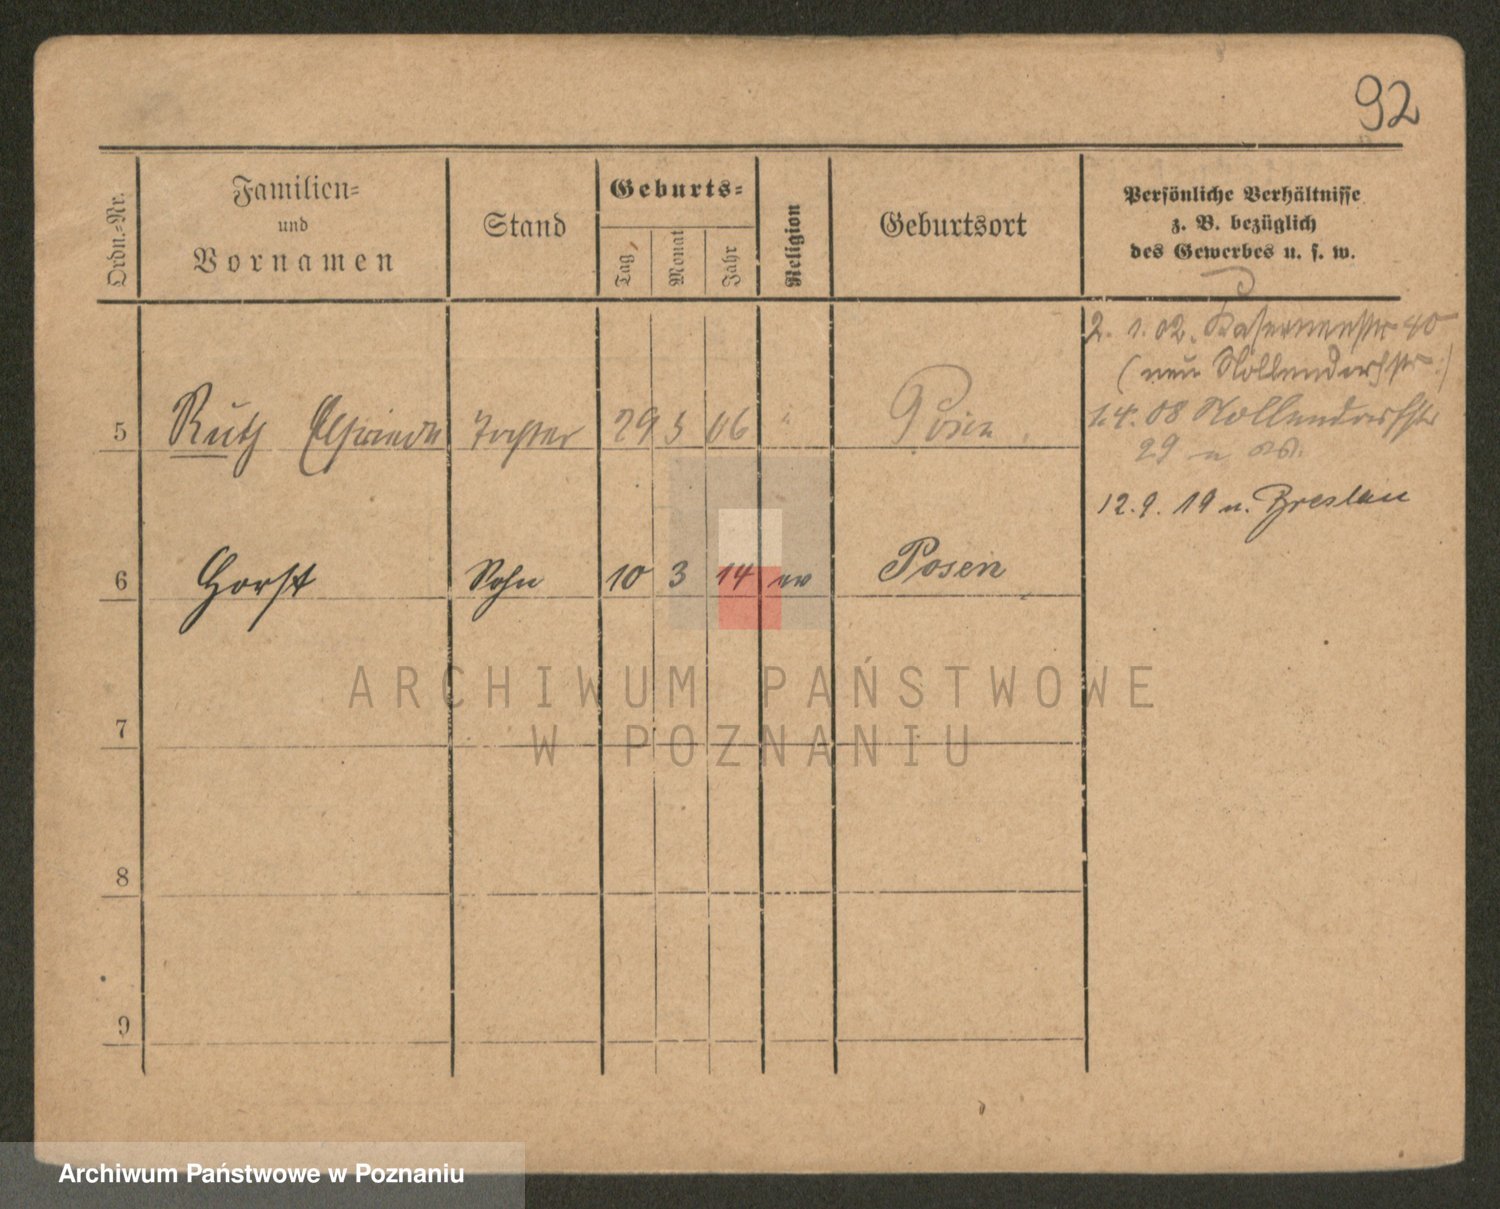 92
Ordn.-Nr.
Familien-
und
Vornamen
Stand
Geburts-
Tag
Monat
Jahr
Religion
Geburtsort
Persönliche Verhältnisse
z. B. bezüglich
des Gewerbes u. s. w.
2. 1. 02. Kasernenstr 40
(neu Nollendorfstr.)
5 Ruth Elfriede Tochter 29 5 06 " Posen
1.4. 08 Nollendorfstr
29
12. 9. 19 n. Breslau
6 Horst Sohn 10 3 14 ev Posen
ARCHIWUM PAŃSTWOWE
W POZNANIU
7
8
9
Archiwum Państwowe w Poznaniu